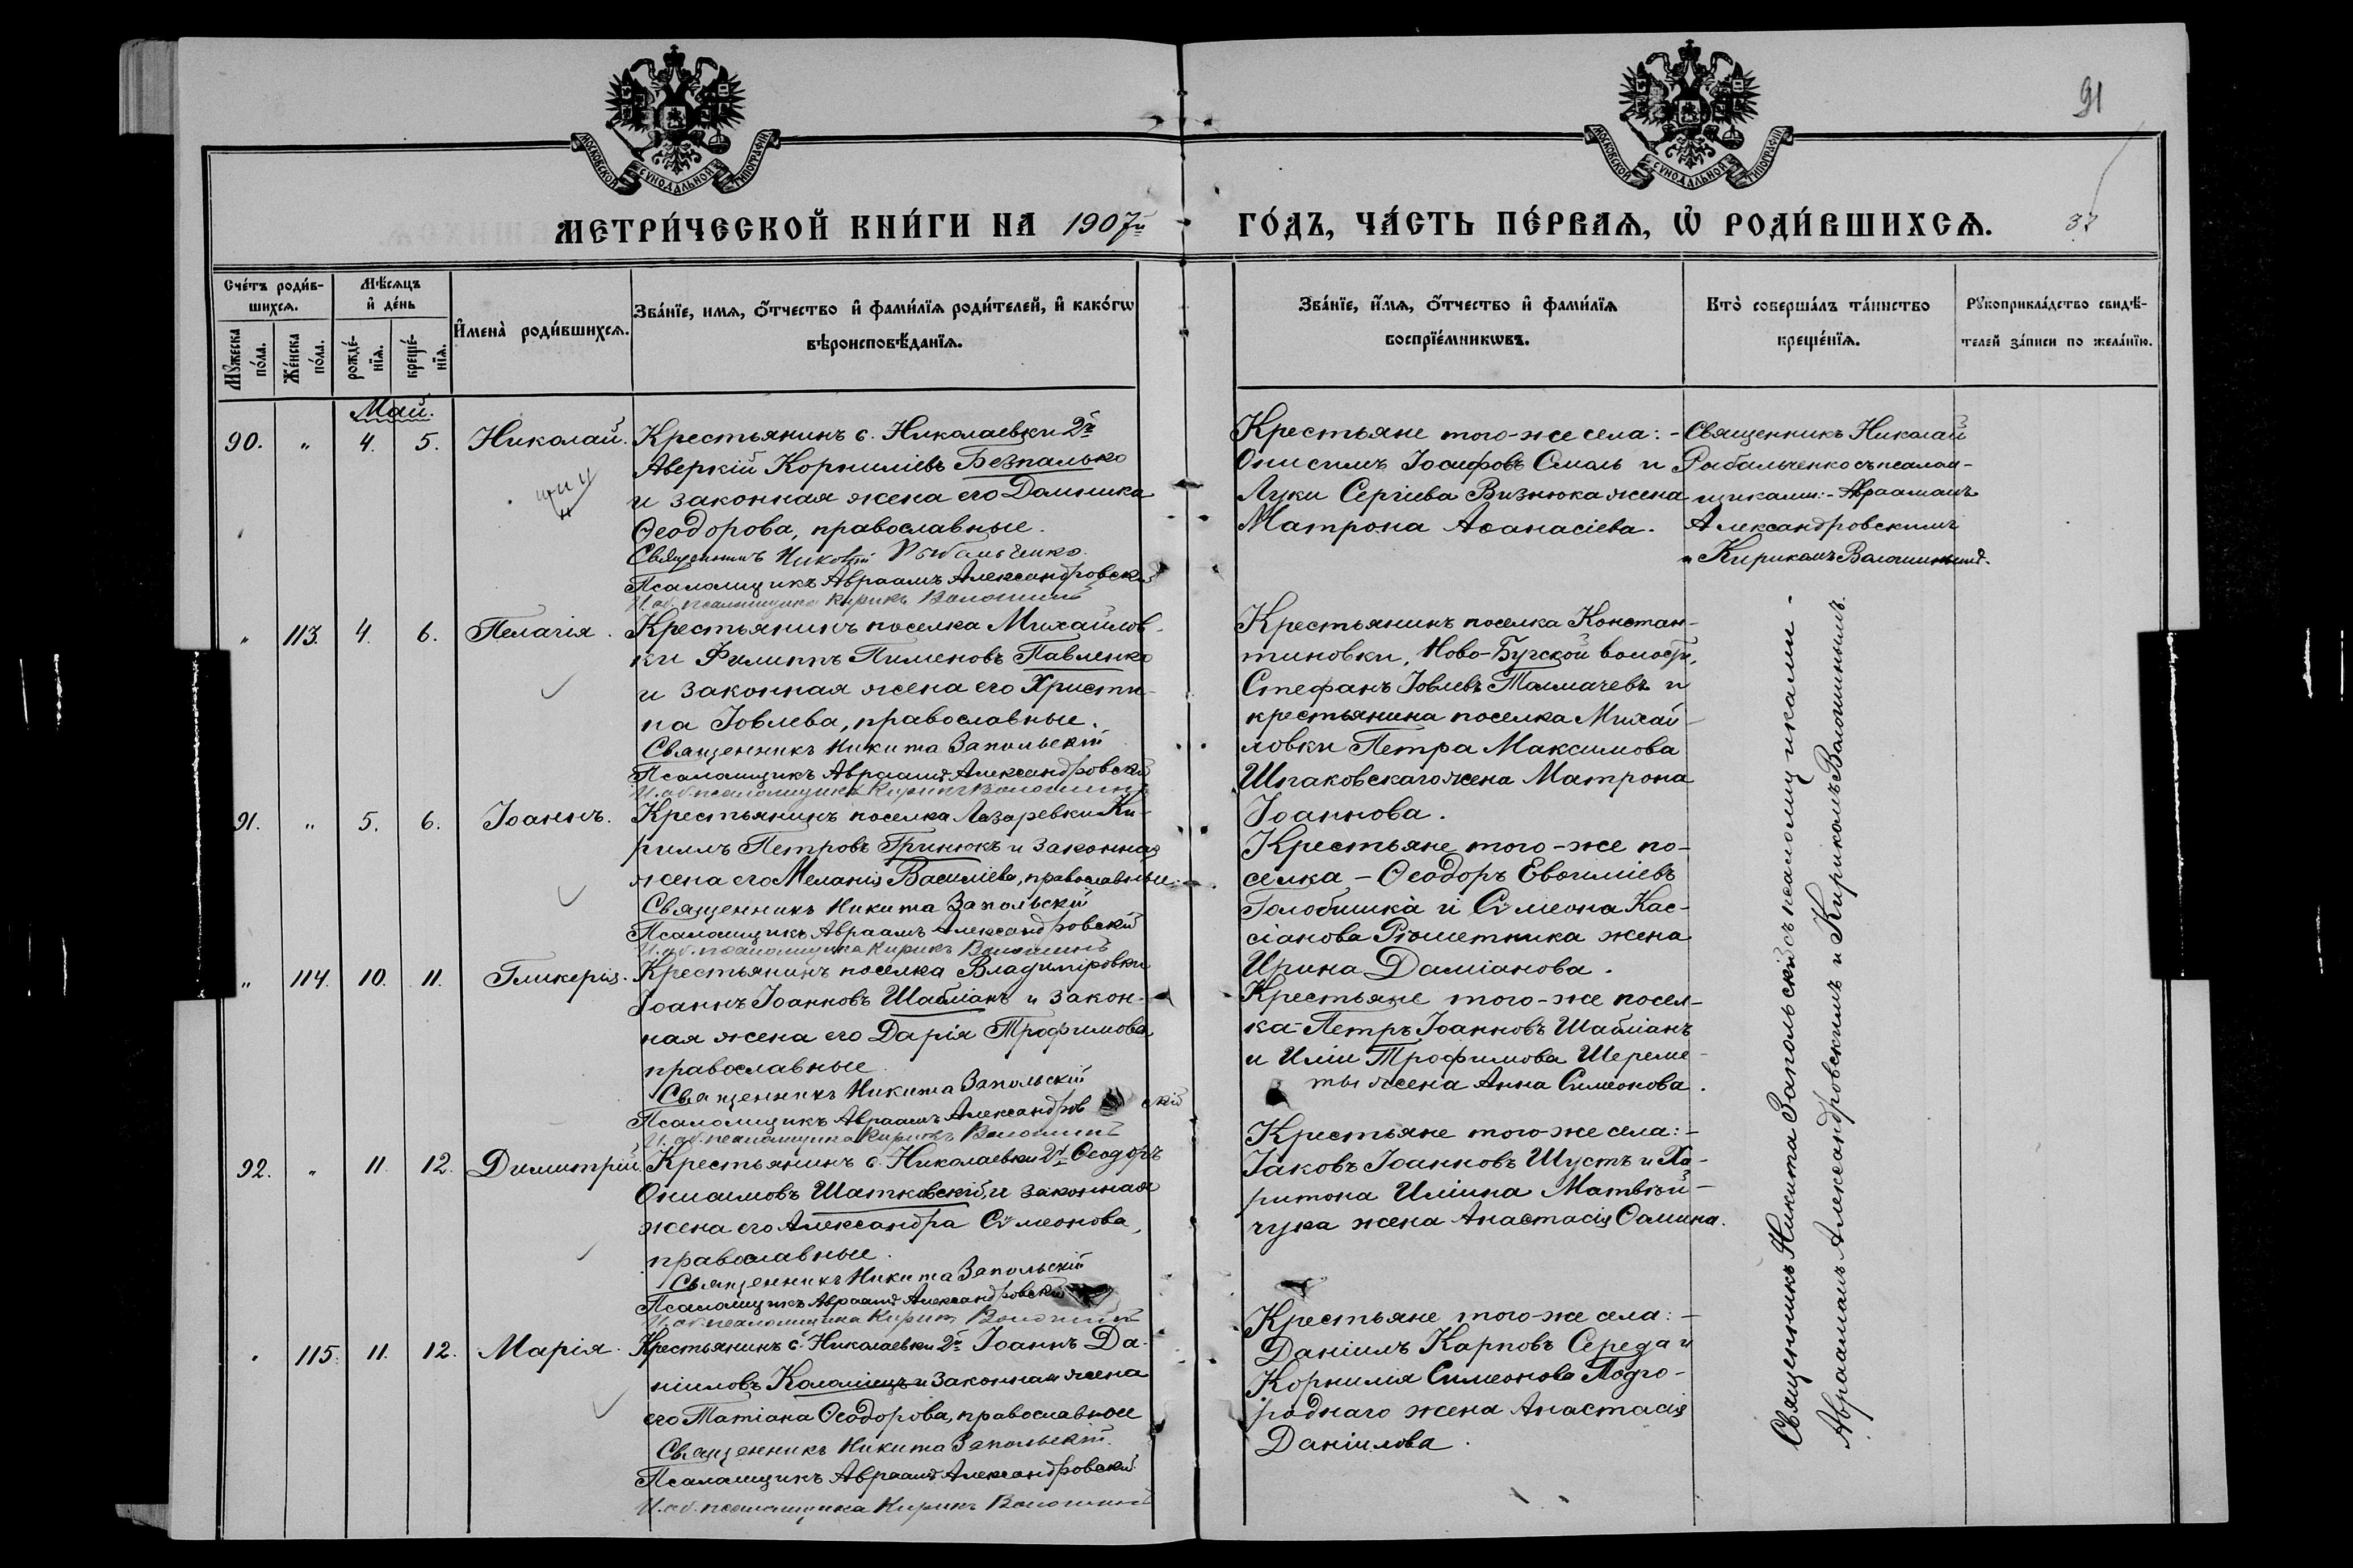 91
МОСКОВСКОЙ СѴНОДАЛЬНОЙ ТИПОГРАФІИ
МОСКОВСКОЙ СѴНОДАЛЬНОЙ ТИПОГРАФІИ
МЕТРИ́ЧЕСКОЙ КНИ́ГИ НА 1907й ГО́ДЪ, ЧА́СТЬ ПЕ́РВАѦ, Ѡ҆ РОДИ́ВШИХСѦ. 37
Сче́тъ роди́в-
шихсѧ.
Мꙋ́жеска по́ла.
Же́нска по́ла.
Мѣ́сѧцъ
и҆ де́нь
рожде́-
нїѧ.
креще́-
нїѧ.
И҆мена̀ роди́вшихсѧ.
Зва́нїе, имѧ, ѻ҆́тчество и҆ фами́лїѧ роди́телей, и҆ како́гѡ
вѣроисповѣ́данїѧ.
Зва́нїе, и҆́мѧ, ѻ҆́тчество и҆ фами́лїѧ
воспрїе́мникѡвъ.
Кто̀ соверша́лъ та́инство
креще́нїѧ.
Рꙋкоприкла́дство свидѣ́-
телей за́писи по жела́нїю.
Май.
90. " 4. 5. Николай.
Крестьянинъ с. Николаевки 2й
Аверкій Корниліевъ Безпалько
и законная жена его Домника
Ѳеодорова, православные.
Священникъ Николай Рыбальченко.
Псаломщикъ Авраамъ Александровскій
И. об. псаломщика Кирикъ Волошинъ
Крестьяне того-же села: -
Онисимъ Іосифовъ Смаль и
Луки Сергіева Визнюка жена
Матрона Аѳанасіева.
Священникъ Николай
Рыбальченко съ псалом-
щиками: - Авраамомъ
Александровскимъ
и Кирикомъ Волошинымъ.
" 113. 4. 6. Пелагія.
Крестьянинъ поселка Михайлов-
ки Филиппъ Пименовъ Павленко
и законная жена его Христи-
на Іовлева, православные.
Священникъ Никита Запольскій
Псаломщикъ Авраамъ Александровскій
И. об. псаломщика Кирикъ Волошинъ
Крестьянинъ поселка Констан-
тиновки, Ново-Бугской волости,
Стефанъ Іовлевъ Толмачевъ и
крестьянина поселка Михай-
ловки Петра Максимова
Шпаковскаго жена Матрона
Іоаннова.
91. " 5. 6. Іоаннъ.
Крестьянинъ поселка Лазаревки Ки-
риллъ Петровъ Гринюкъ и законная
жена его Меланія Василіева, православные.
Священникъ Никита Запольскій
Псаломщикъ Авраамъ Александровскій
И. об. псаломщика Кирикъ Волошинъ
Крестьяне того-же по-
селка - Ѳеодоръ Евѳиміевъ
Голобишка и Сѵмеона Кас-
сіанова Рѣшетника жена
Ирина Даміанова.
" 114. 10. 11. Гликерія.
Крестьянинъ поселка Владиміровки
Іоаннъ Іоанновъ Шабліанъ и закон-
ная жена его Дарія Трофимова
православные
Священникъ Никита Запольскій
Псаломщикъ Авраамъ Александровскій
И. об. псаломщика Кирикъ Волошинъ
Крестьяне того-же посел-
ка - Петръ Іоанновъ Шабліанъ
и Иліи Трофимова Шереме-
ты жена Анна Симеонова.
92. " 11. 12. Димитрій.
Крестьянинъ с. Николаевки 2й Ѳеодоръ
Онисимовъ Шатковскій и законная
жена его Александра Сѵмеонова,
православные.
Священникъ Никита Запольскій
Псаломщикъ Авраамъ Александровскій
И. об. псаломщика Кирикъ Волошинъ
Крестьяне того-же села: -
Іаковъ Іоанновъ Шустъ и Ха-
ритона Иліина Матвѣй-
чука жена Анастасія Ѳомина.
" 115. 11. 12. Марія.
Крестьянинъ с. Николаевки 2й Іоаннъ Да-
ніиловъ Коломіецъ и законная жена
его Татіана Ѳеодорова, православные
Священникъ Никита Запольскій.
Псаломщикъ Авраамъ Александровскій
И. об. псаломщика Кирикъ Волошинъ
Крестьяне того-же села: -
Даніилъ Карповъ Середа и
Корнилія Симеонова Подго-
роднаго жена Анастасія
Даніилова.
Священникъ Никита Запольскій съ псаломщиками -
Авраамомъ Александровскимъ и Кирикомъ Волошинымъ.